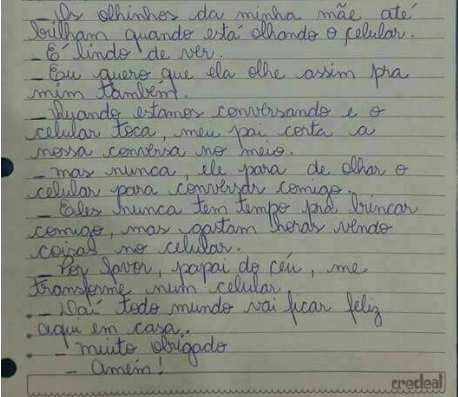 Os olhinhos da minha mãe até
brilham quando está olhando o celular.
_ É lindo de ver.
_ Eu quero que ela olhe assim pra
mim também.
_ Quando estamos conversando e o
celular toca, meu pai corta a
nossa conversa no meio.
_ mas nunca, ele para de olhar o
celular para conversar comigo.
_ Eles nunca tem tempo pra brincar
comigo, mas gastam horas vendo
coisas no celular.
_ Por favor, papai do céu, me
transforme num celular.
_ Daí todo mundo vai ficar feliz
aqui em casa.
_ muito obrigado
_ Amém!
credeal